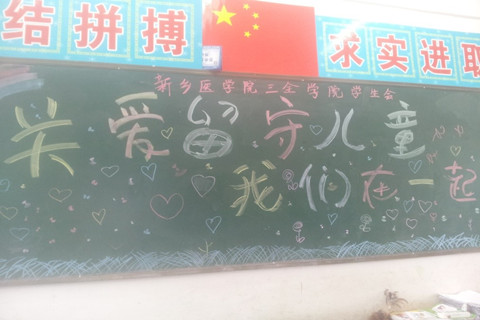 结拼搏
求实进取
新乡医学院三全学院学生会
关爱留守儿童
我们在一起